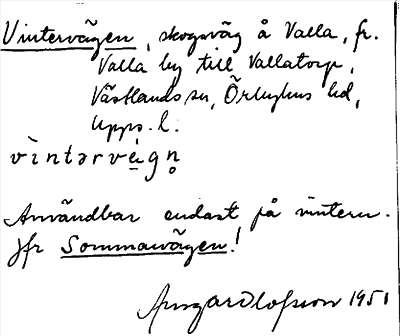 Vintervägen, skogsväg å Valla, fr.
Valla by till Vallatorp,
Västlands sn, Örbyhus hd,
Upps. l.
vìntərvɛ́gn̥
Användbar endast på vintern.
Jfr Sommarvägen!
Olofsson 1951